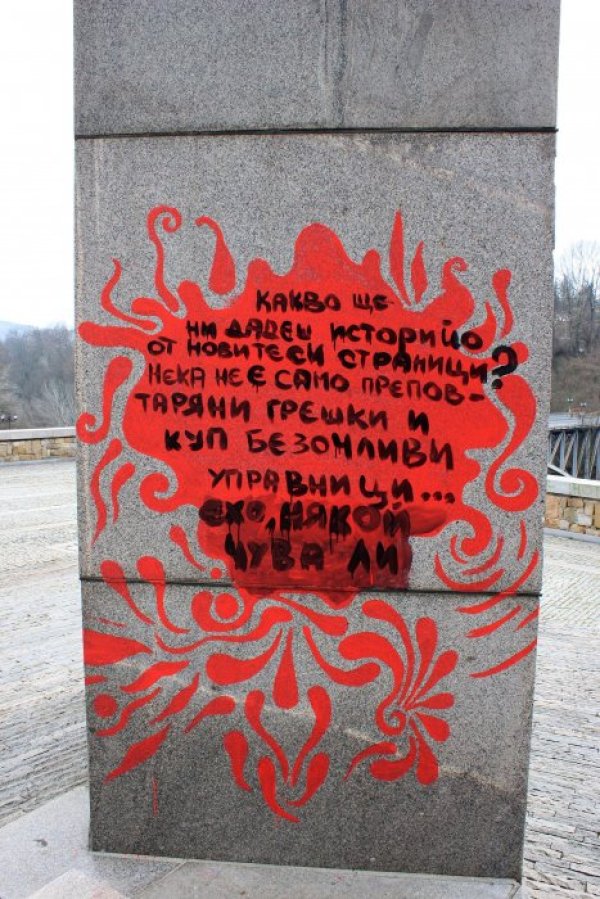 КАКВО ЩЕ
НИ ДАДЕШ ИСТОРИЙО
ОТ НОВИТЕСИ СТРАНИЦИ?
НЕКА НЕ Е САМО ПРЕПОВ-
ТАРЯНИ ГРЕШКИ И
КУП БЕЗОМЛИВИ
УПРАВНИЦИ...
ЕХО, НЯКОЙ
ЧУВА ЛИ